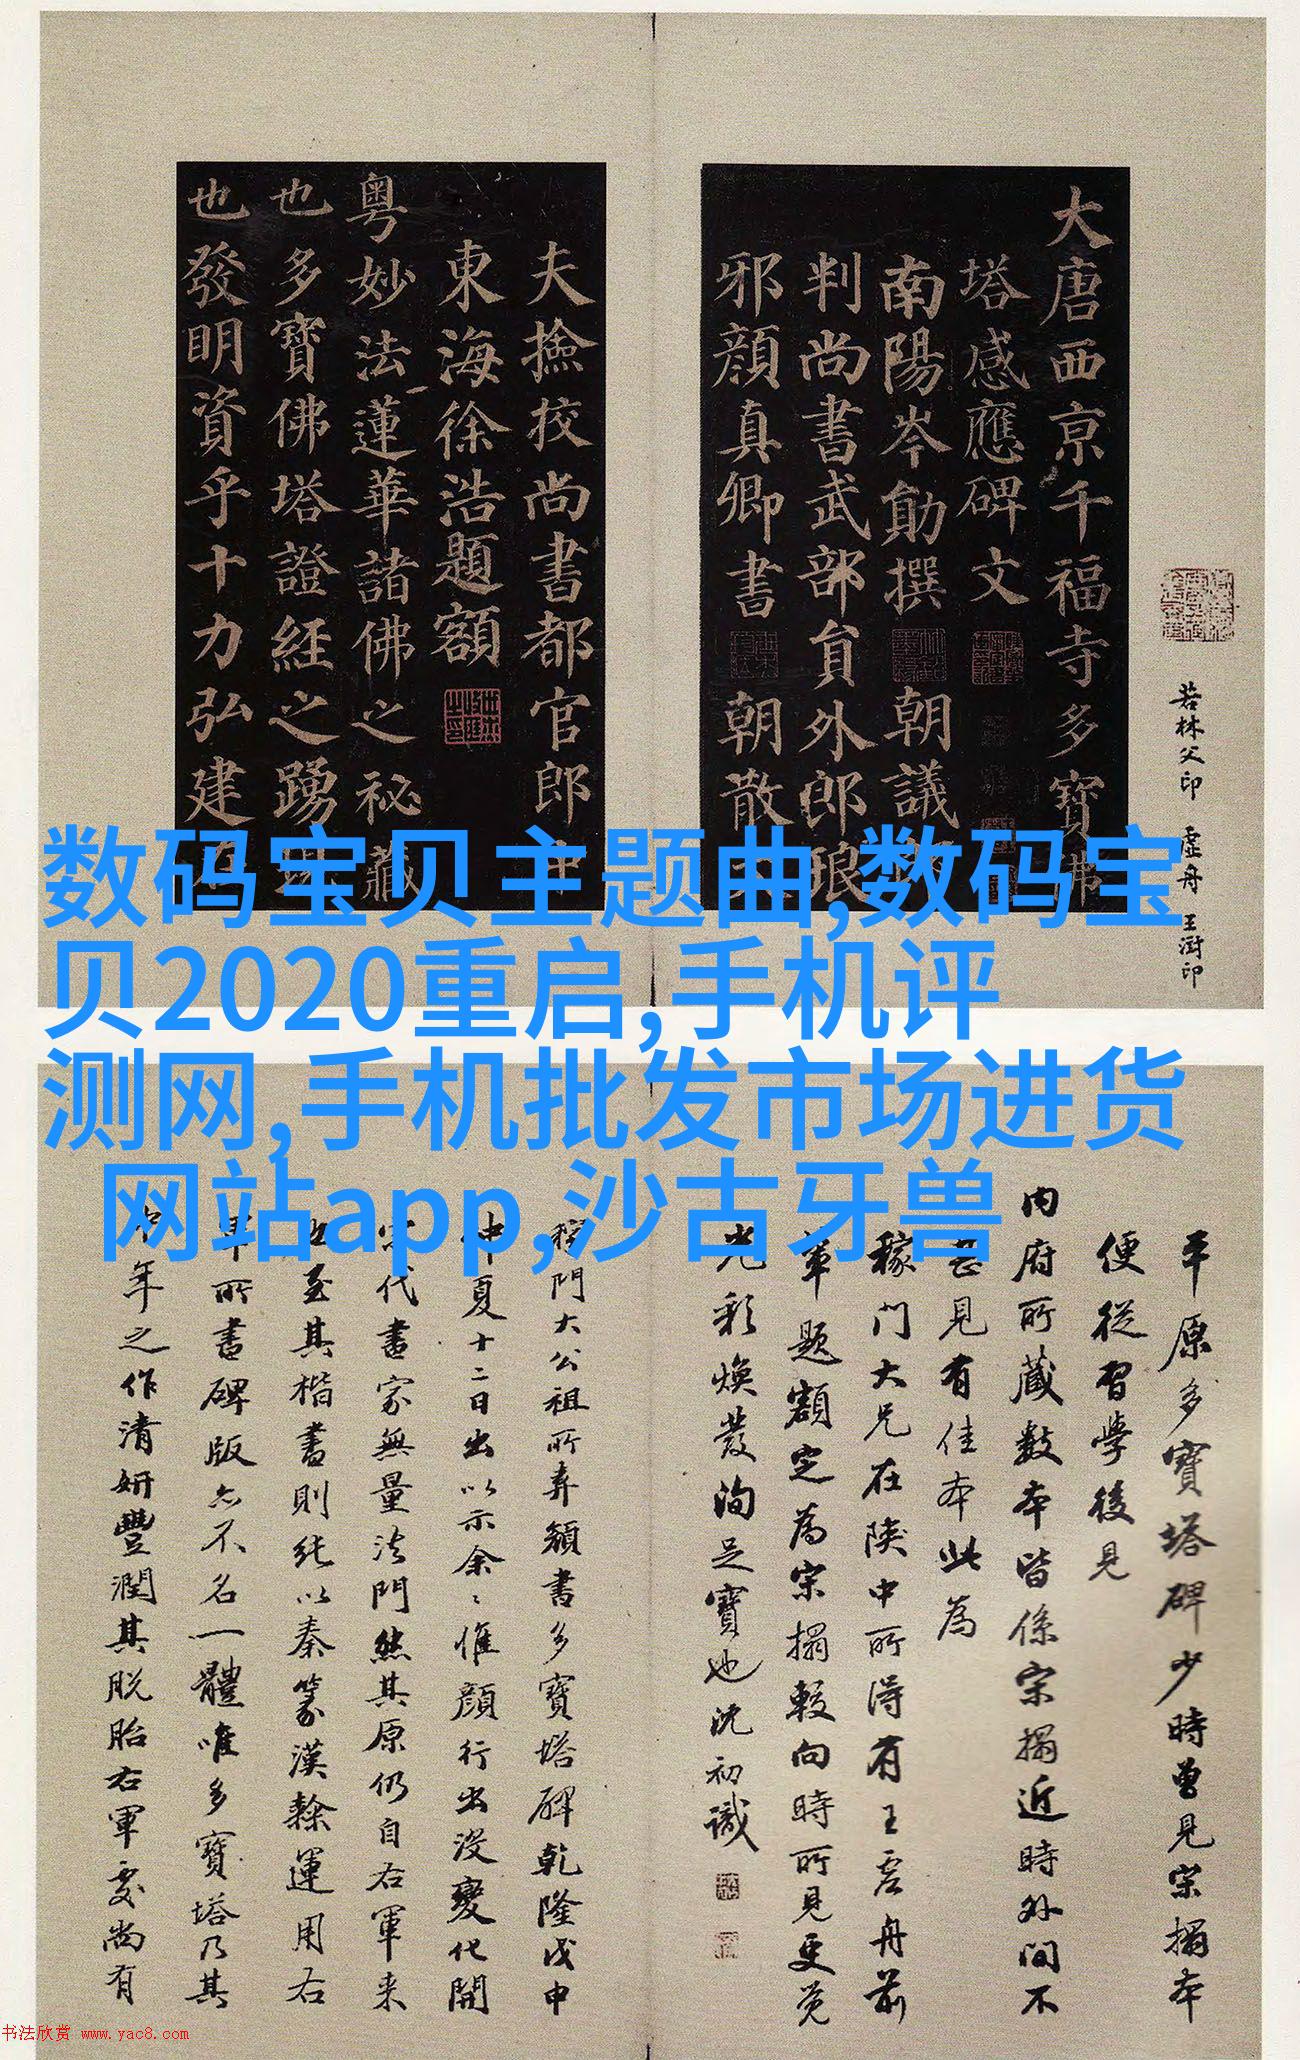 大唐西京千福寺多寶佛
塔感應碑文
南陽岑勛撰 朝議
判尚書武部員外郎琅
邪顏真卿書 朝散
夫撿挍尚書都官郎
東海徐浩題額
粵妙法蓮華諸佛之祕藏
也多寶佛塔證經之踴
也發明資乎十力弘建
若林父印 虛舟 王澍印
数码宝贝主题曲,数码宝
贝2020重启,手机评
测网,手机批发市场进货
网站app,沙古牙兽
平原多寶塔碑少時曾見宋搨本
便從習學後見
内府所藏數本皆係宋搨近時外間不
見有佳本此為
稼门大兄在陕中所得有王虛舟前
輩題額定為宋搨較向時所見更覚
光彩煥發洵足寶也沈初識
稼門大公祖所弆顏書多寶塔碑乾隆戊申
仲夏十二日出以示余〻惟顏行出没變化開
宋代書家無量法門然其原仍自右軍来
至其楷書則純以秦篆漢隸運用右
軍所書碑版亦不名一體唯多寶塔乃其
中年之作清妍豐潤其脱胎右軍處尚有
书法欣赏 www.yac8.com